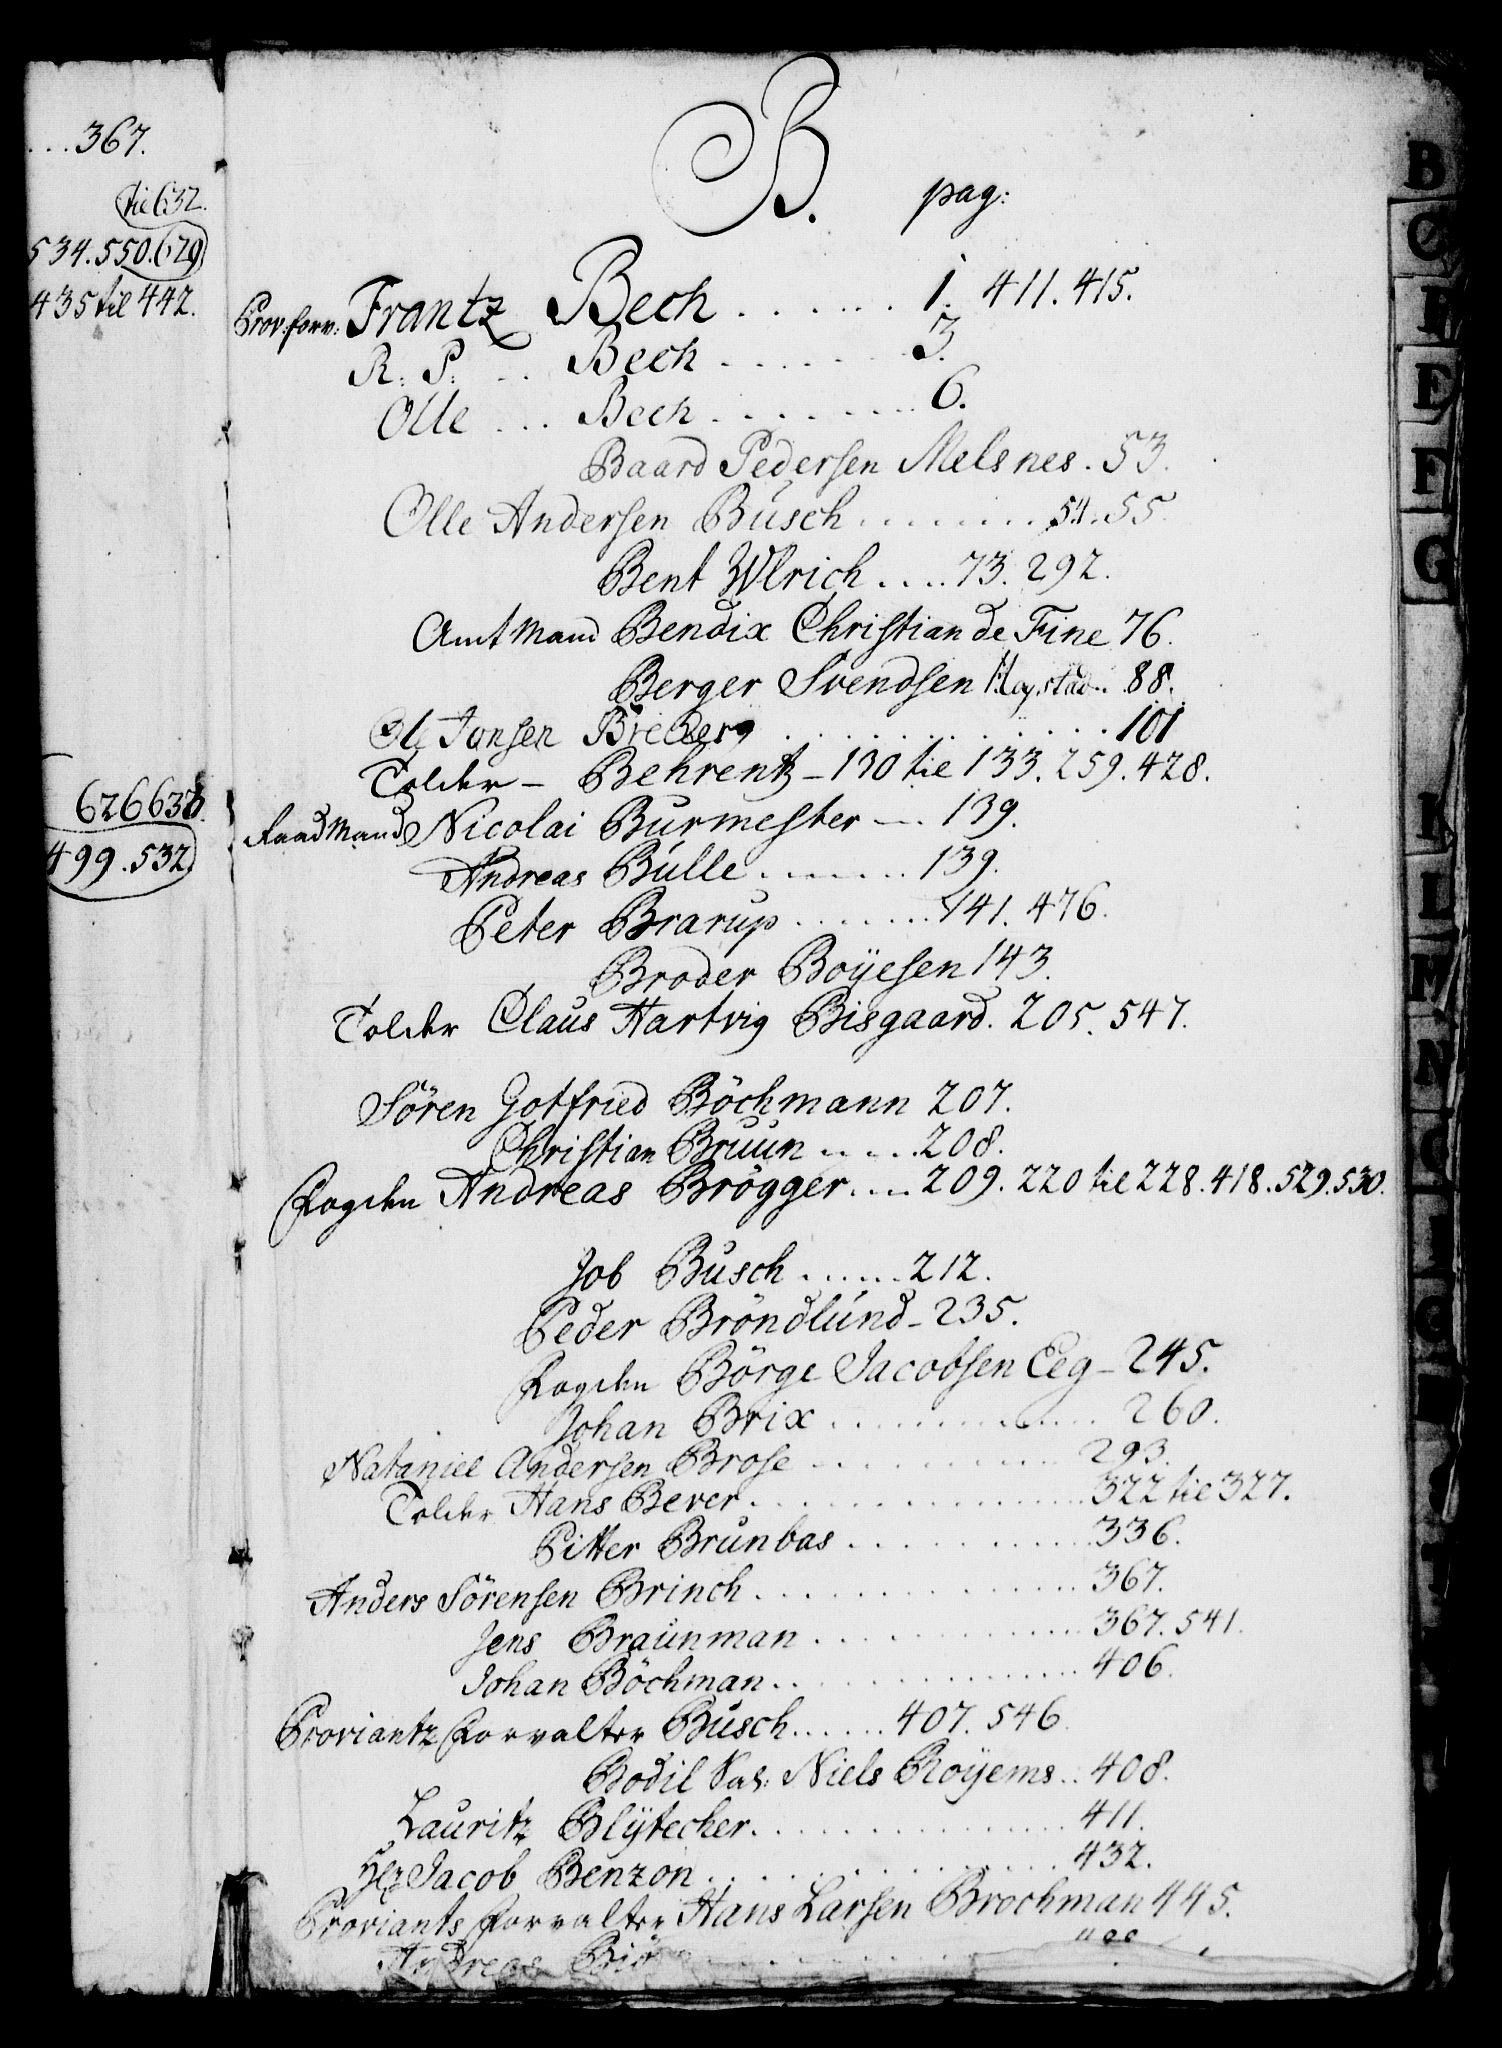 ...367.
til 632.
534.550.629
435 til 442.
626 637.
499.532
B.
pag:
Prov:forv: Frantz Bech ....... 1. 411. 415.
R: P: .. Bech ....... 3.
Olle ... Bech ......... 6.
Baard Pedersen Melsnes. 53.
Olle Andersen Busch ........ 54. 55.
Bent Wlrich .... 73. 292.
Amtmand Bendix Christian de Fine 76.
Berger Svendsen .. 88.
Ole Jonsen Breberg ............ 101
Tolder – Behrentz – 130 til 133. 259. 428.
Raadmand Nicolai Burmester — 139.
Andreas Bulle ....... 139.
Peter Brarup ....... 141. 476.
Broder Boÿesen 143.
Tolder Claus Hartvig Bisgaard. 205. 547.
Sören Gotfried Böchmann 207.
Christian Bruun ..... 208.
Fogden Andreas Brögger .... 209. 220 til 228. 418. 529. 530.
Job Busch ...... 212.
Peder Bröndlund – 235.
Fogden Börge Jacobsen Eeg – 245.
Johan Brix ............ 260.
Nataniel Andersen Brose ........... 293.
Tolder Hans Bever ............. 322 til 327.
Pitter Brunbas ........... 336.
Anders Sörensen Brinch ............. 367.
Jens Braunman ............ 367. 541.
Johan Böchman ............. 406.
Proviantz Forvalter Busch ...... 407. 546.
Bodil Sal: Niels Royems .. 408.
Lauritz Blÿtecher ............. 411.
Hr Jacob Benzon ............. 432.
Proviants Forvalter Hans Larsen Brochman 445.
Andreas
B
C
E
F
G
L
M
N